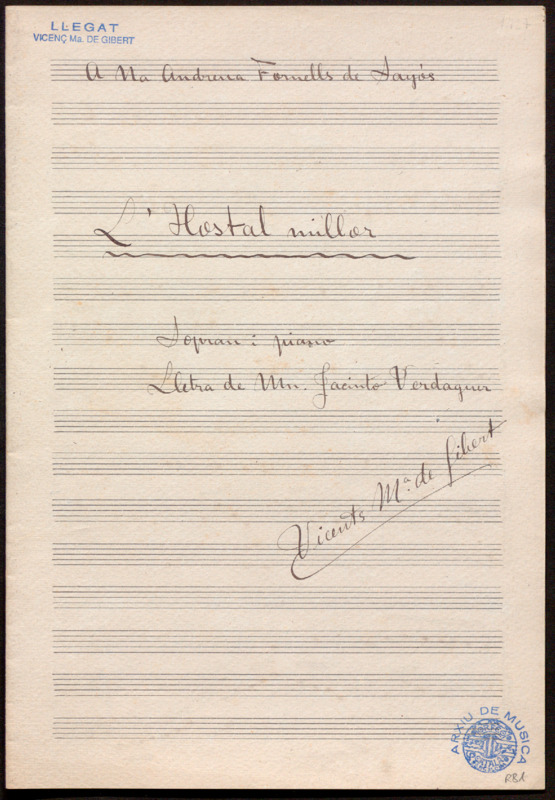 LLEGAT
VICENÇ Ma. DE GIBERT
A Na Andreua Fornells de Sayós
L'Hostal millor
Sopran i piano
Lletra de Mn. Jacinto Verdaguer
Vicents Mª. de Gibert
ARXIU DE MUSICA
ORFEO CATALA
RB1